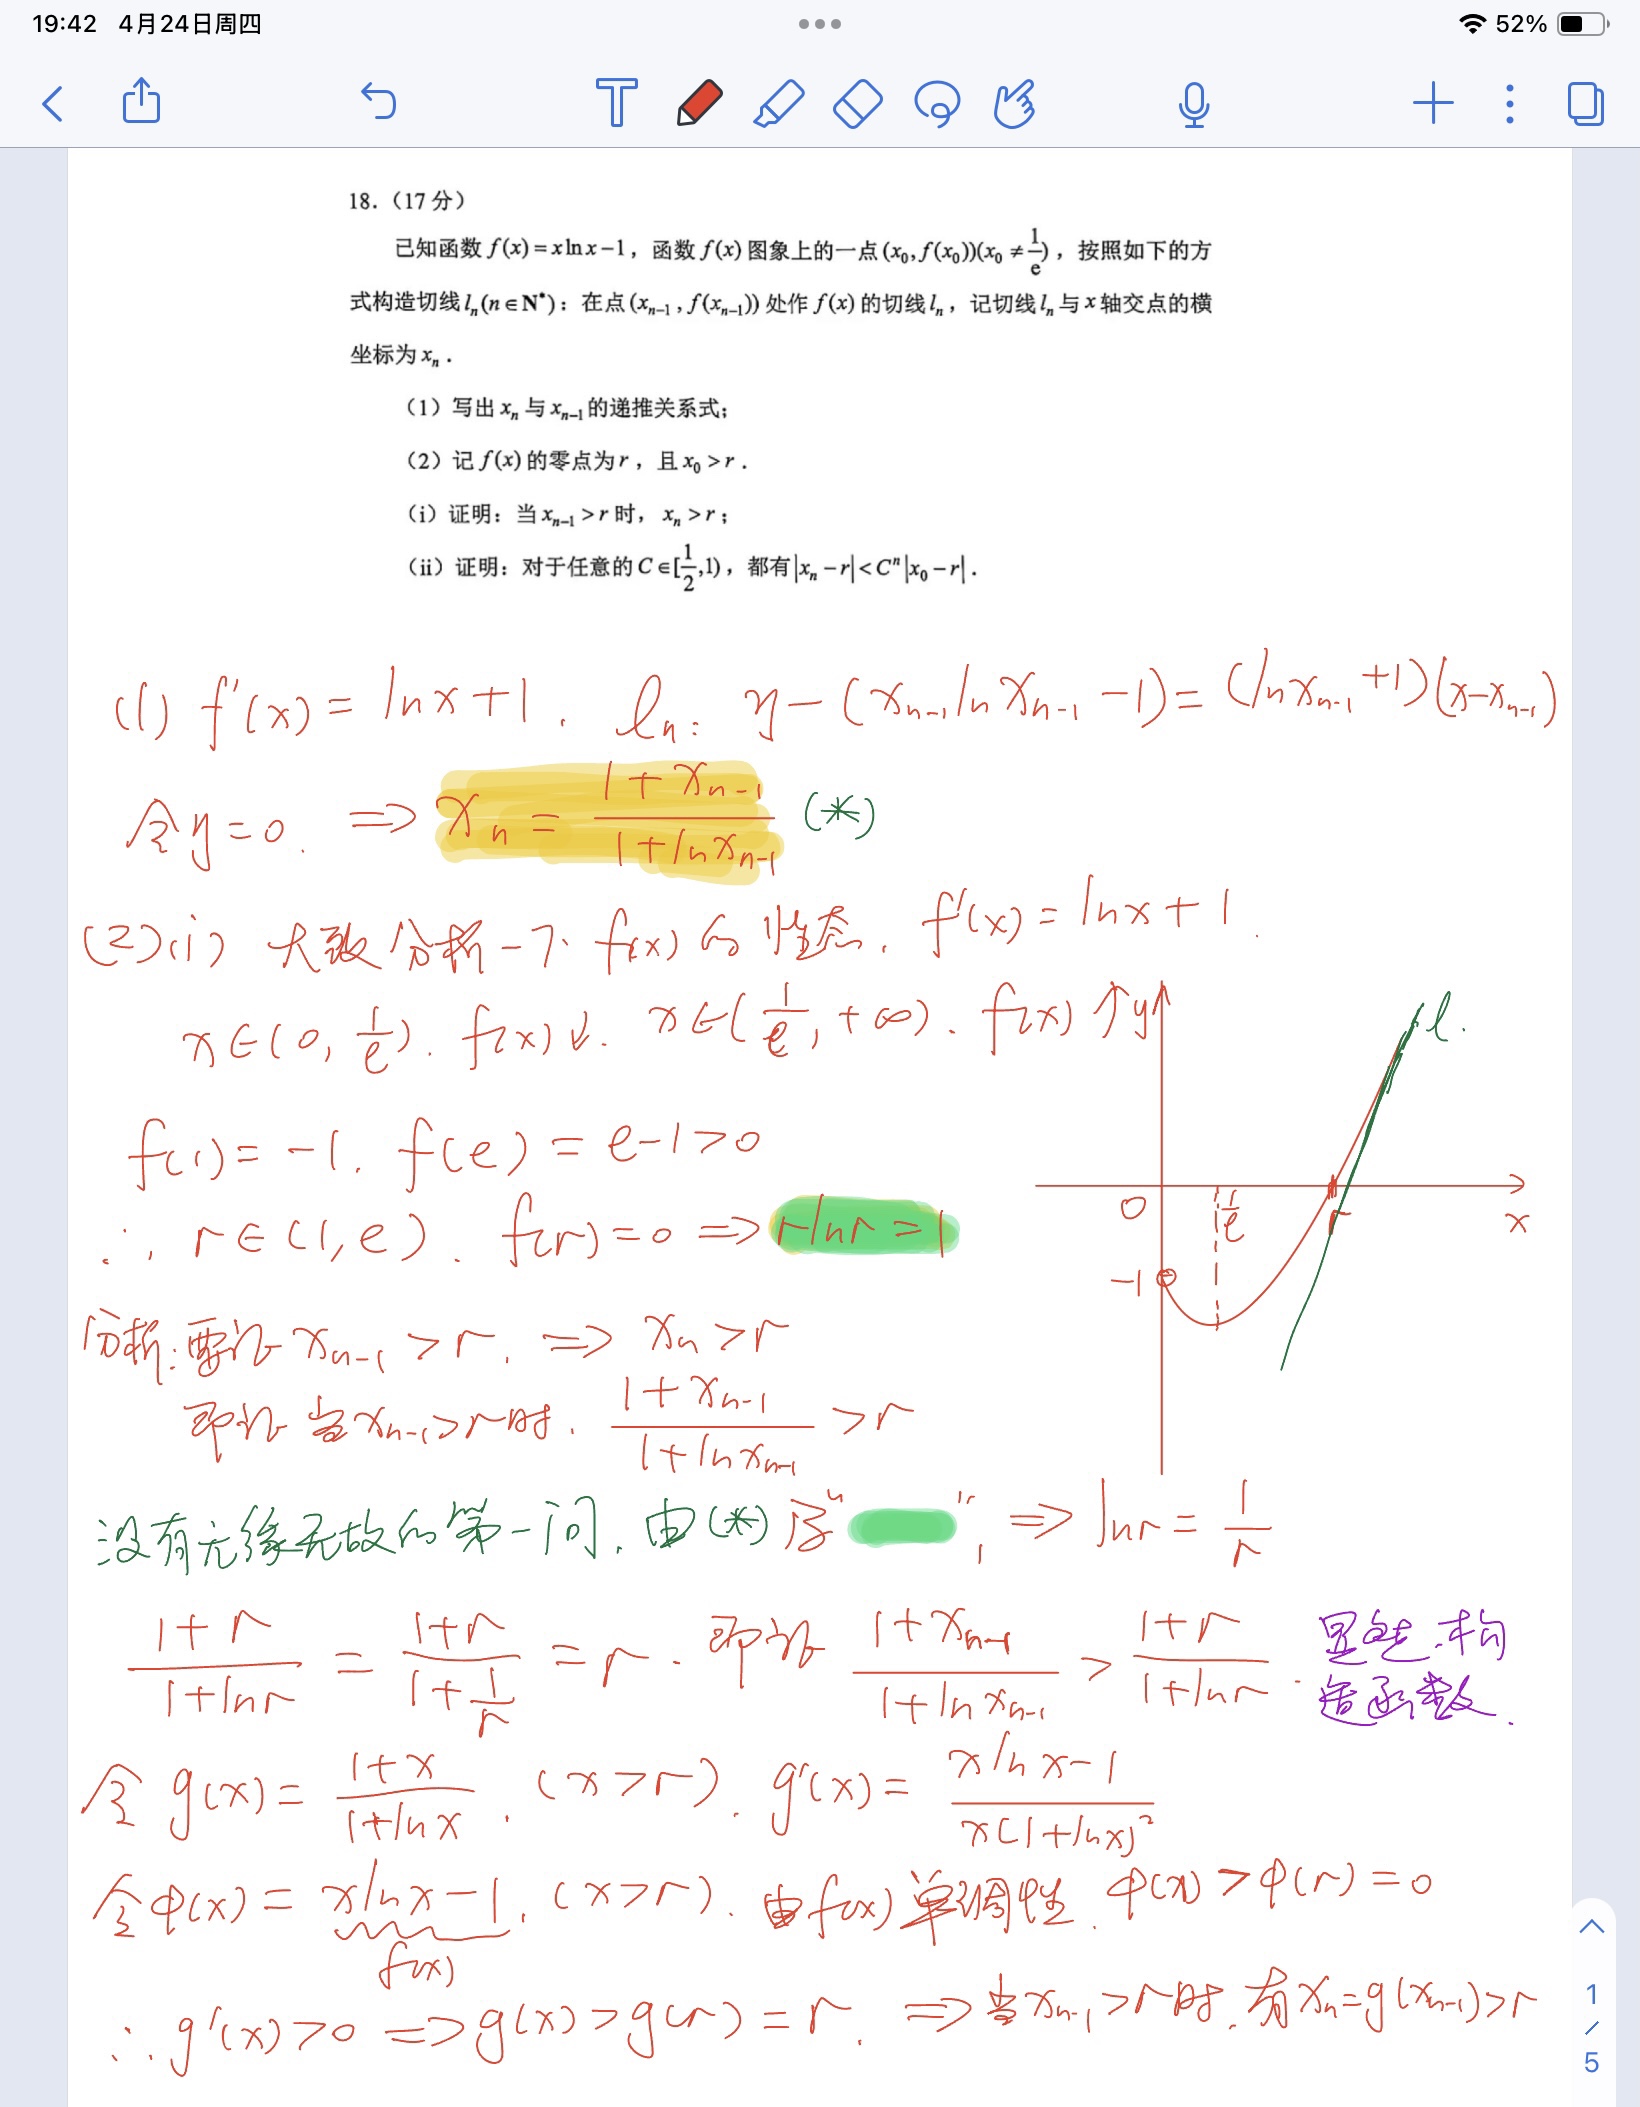 19:42 4月24日周四
52%
18.（17 分）
已知函数 f(x)=xlnx−1，函数 f(x) 图象上的一点 (x₀,f(x₀))(x₀≠1/e)，按照如下的方
式构造切线 lₙ(n∈N*)：在点 (xₙ₋₁,f(xₙ₋₁)) 处作 f(x) 的切线 lₙ，记切线 lₙ 与 x 轴交点的横
坐标为 xₙ．
（1）写出 xₙ 与 xₙ₋₁ 的递推关系式；
（2）记 f(x) 的零点为 r，且 x₀>r．
（i）证明：当 xₙ₋₁>r 时，xₙ>r；
（ii）证明：对于任意的 C∈[1/2,1)，都有|xₙ−r|<Cⁿ|x₀−r|．
(1) f'(x)=lnx+1. lₙ: y−(xₙ₋₁lnxₙ₋₁−1)=(lnxₙ₋₁+1)(x−xₙ₋₁)
令y=0. ⇒ xₙ=(1+xₙ₋₁)/(1+lnxₙ₋₁) (*)
(2)(i) 大致分析一下 f(x) 的性态. f'(x)=lnx+1.
x∈(0,1/e). f(x)↓. x∈(1/e,+∞). f(x)↑
y
l.
f(1)=−1. f(e)=e−1>0
0
1/e
r
x
−1
∴ r∈(1,e). f(r)=0 ⇒ rlnr=1
分析:要证 xₙ₋₁>r. ⇒ xₙ>r
即证 当xₙ₋₁>r时. (1+xₙ₋₁)/(1+lnxₙ₋₁)>r
没有无缘无故的第一问. 由(*) 及“ ”, ⇒ lnr=1/r
(1+r)/(1+lnr)=(1+r)/(1+1/r)=r. 即证 (1+xₙ₋₁)/(1+lnxₙ₋₁)>(1+r)/(1+lnr).
显然.构
造函数.
令 g(x)=(1+x)/(1+lnx). (x>r). g'(x)=(xlnx−1)/(x(1+lnx)²)
令φ(x)=xlnx−1. (x>r). 由f(x)单调性. φ(x)>φ(r)=0
f(x)
∴ g'(x)>0 ⇒ g(x)>g(r)=r. ⇒ 当xₙ₋₁>r时. 有xₙ=g(xₙ₋₁)>r
1
/
5